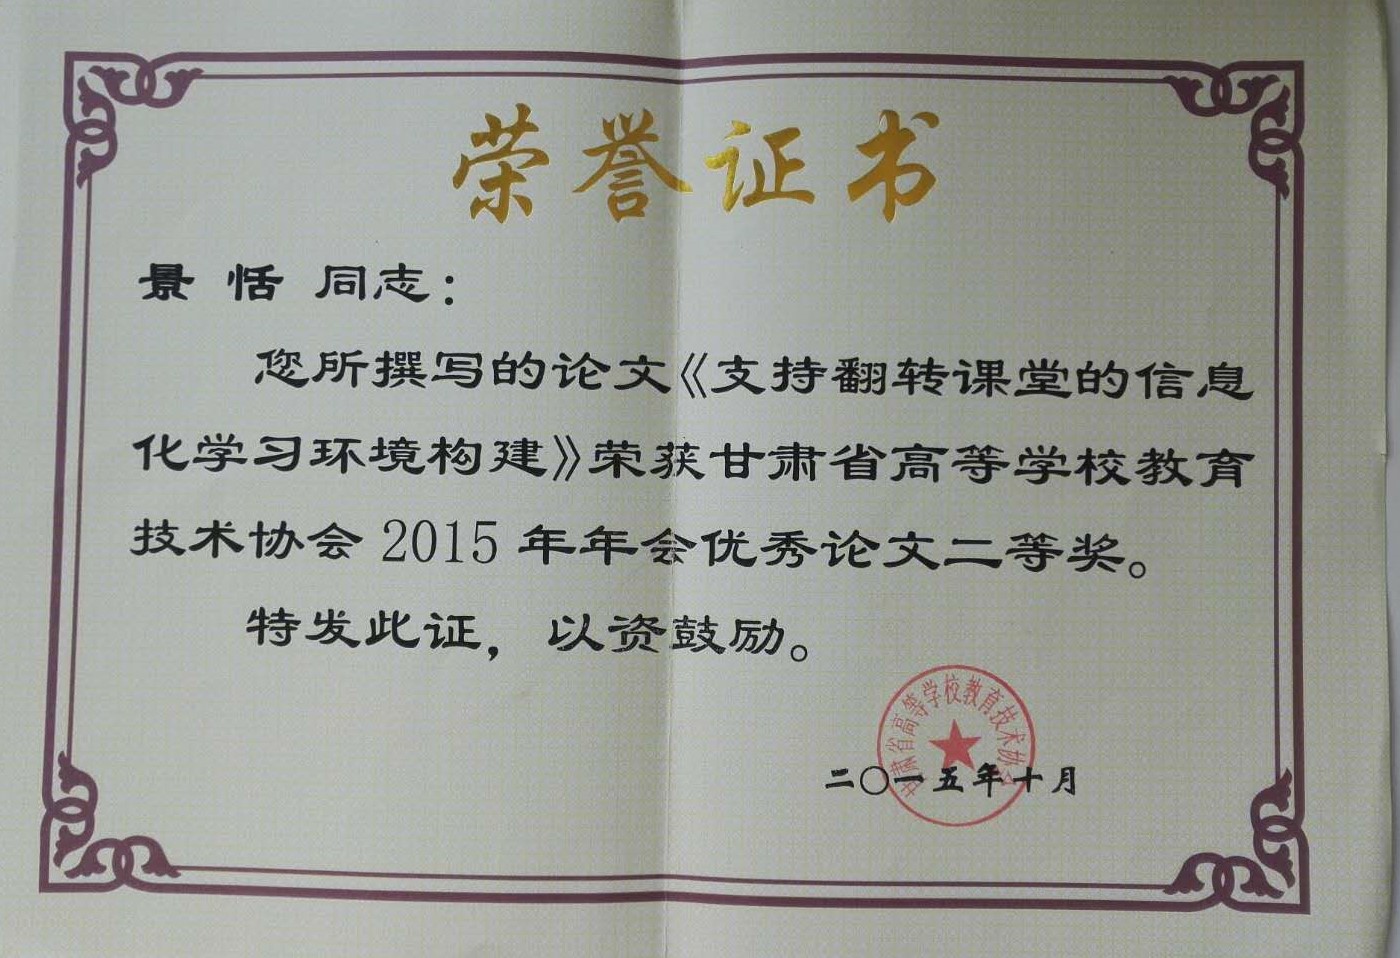 荣誉证书
景 恬 同志：
您所撰写的论文《支持翻转课堂的信息
化学习环境构建》荣获甘肃省高等学校教育
技术协会 2015 年年会优秀论文二等奖。
特发此证，以资鼓励。
甘肃省高等学校教育技术协会
二〇一五年十月